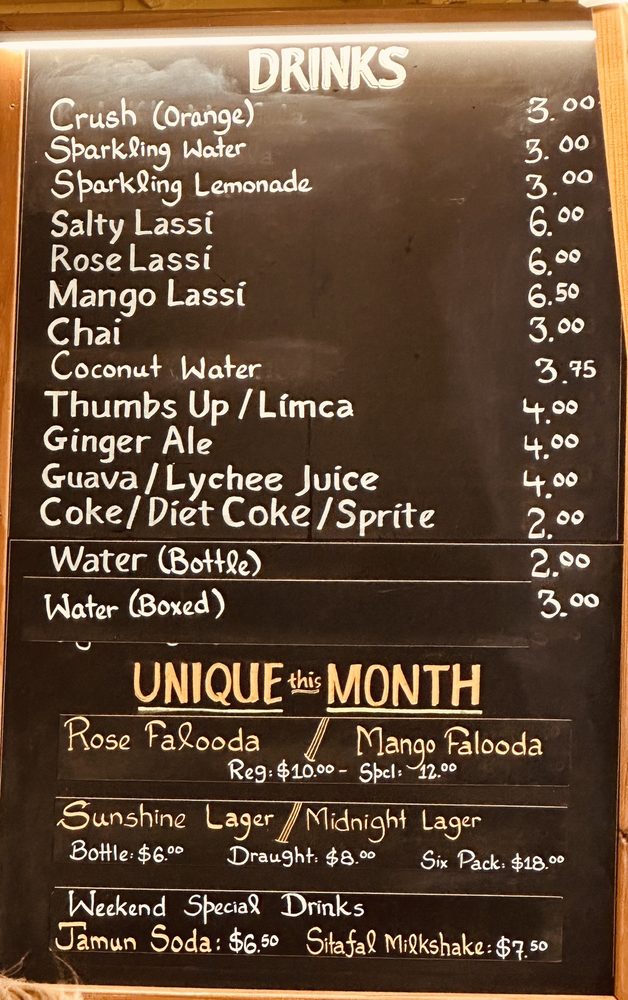 DRINKS
Crush (Orange) 3.00
Sparkling Water 3.00
Sparkling Lemonade 3.00
Salty Lassi 6.00
Rose Lassi 6.00
Mango Lassi 6.50
Chai 3.00
Coconut Water 3.75
Thumbs Up / Limca 4.00
Ginger Ale 4.00
Guava / Lychee Juice 4.00
Coke / Diet Coke / Sprite 2.00
Water (Bottle) 2.00
Water (Boxed) 3.00
UNIQUE this MONTH
Rose Falooda / Mango Falooda
Reg: $10.00 - Spcl: 12.00
Sunshine Lager // Midnight Lager
Bottle: $6.00 Draught: $8.00 Six Pack: $18.00
Weekend Special Drinks
Jamun Soda: $6.50 Sitafal Milkshake: $7.50